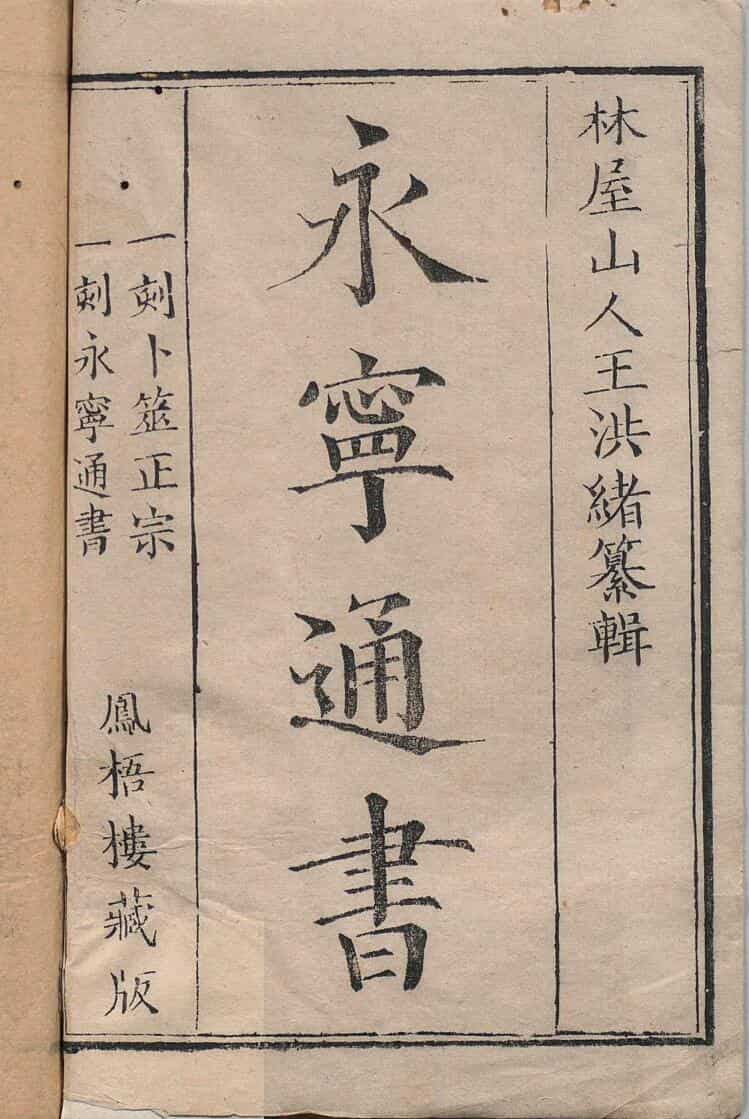 林屋山人王洪緒纂輯
永寧通書
一刻卜筮正宗
一刻永寧通書
鳳梧樓藏版